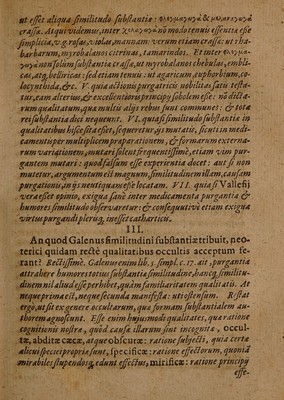 ut esset aliqua similitudo substantiæ: φλεγμαγωγά & μελαναγωγά
crassa. Atqui videmus, inter χολαγωγά nō modo tenuis essentiæ esse
simplicia, v.g. rosas, violas, mannam: verum etiam crassæ: ut rha-
barbarum, myrobalanos citrinas, tamarindos. Et inter
non solùm substantiæ crassæ, ut myrobalanos chebulas, embli-
cas, atq; bellericas: sed etiam tenuis: ut agaricum, euphorbium, co-
locynthida, &c. V. quia actionis purgatricis nobilitas satis testa-
tur, eam alterius, & excellentioris principij sobolem esse: nō dicta-
rum qualitatum, quæ multis alijs rebus sunt communes: & tota
rei substantia dici nequeunt. VI. quia si similitudo substantiæ in
qualitatibus hisce sita esset, sequeretur, ijs mutatis, sicuti in medi-
camentis per multiplicem præparationem, & formarum externa-
rum variationem, mutari solent frequentissimè, etiam vim pur-
gantem mutari: quod falsum esse experientia docet: aut si non
mutetur, argumentum eit magnum, similitudinem illam, causam
purgationis, in ijs neutiquam esse locatam. VII. quia si Vallesij
vera esset opinio, exigua sanè inter medicamenta purgantia &
humores similitudo observaretur: & consequutivè etiam exigua
virtus purgandi plerisq; inesset catharticis.
III.
An quod Galenus similitudini substantiæ tribuit, neo-
terici quidam rectè qualitatibus occultis acceptum fe-
rant? Rectissimè. Galenus enim lib. 3. simpl. c. 17. ait, purgantia
attrahere humores totius substantiæ similitudine, hancq; similitu-
dinem nil aliud esse perhibet, quàm familiaritatem qualitatis. At
neque prima eit, neque secunda manifesta: uti ostensum. Restat
ergo, ut sit ex genere occultarum, quo formam substantialem au-
thorem agnoscunt. Esse enim hujusmodi qualitates, quæ ratione
cognitionis nostræ, quòd causæ illarum sint incognitæ, occul-
tæ, abditæ cæcæ, atque obscuræ: ratione subjecti, quia certæ
alicui speciei propriæ sunt, specificæ: ratione effectorum, quoniā
mirabiles stupendosq; edunt effectus, mirificæ: ratione principij
esse-